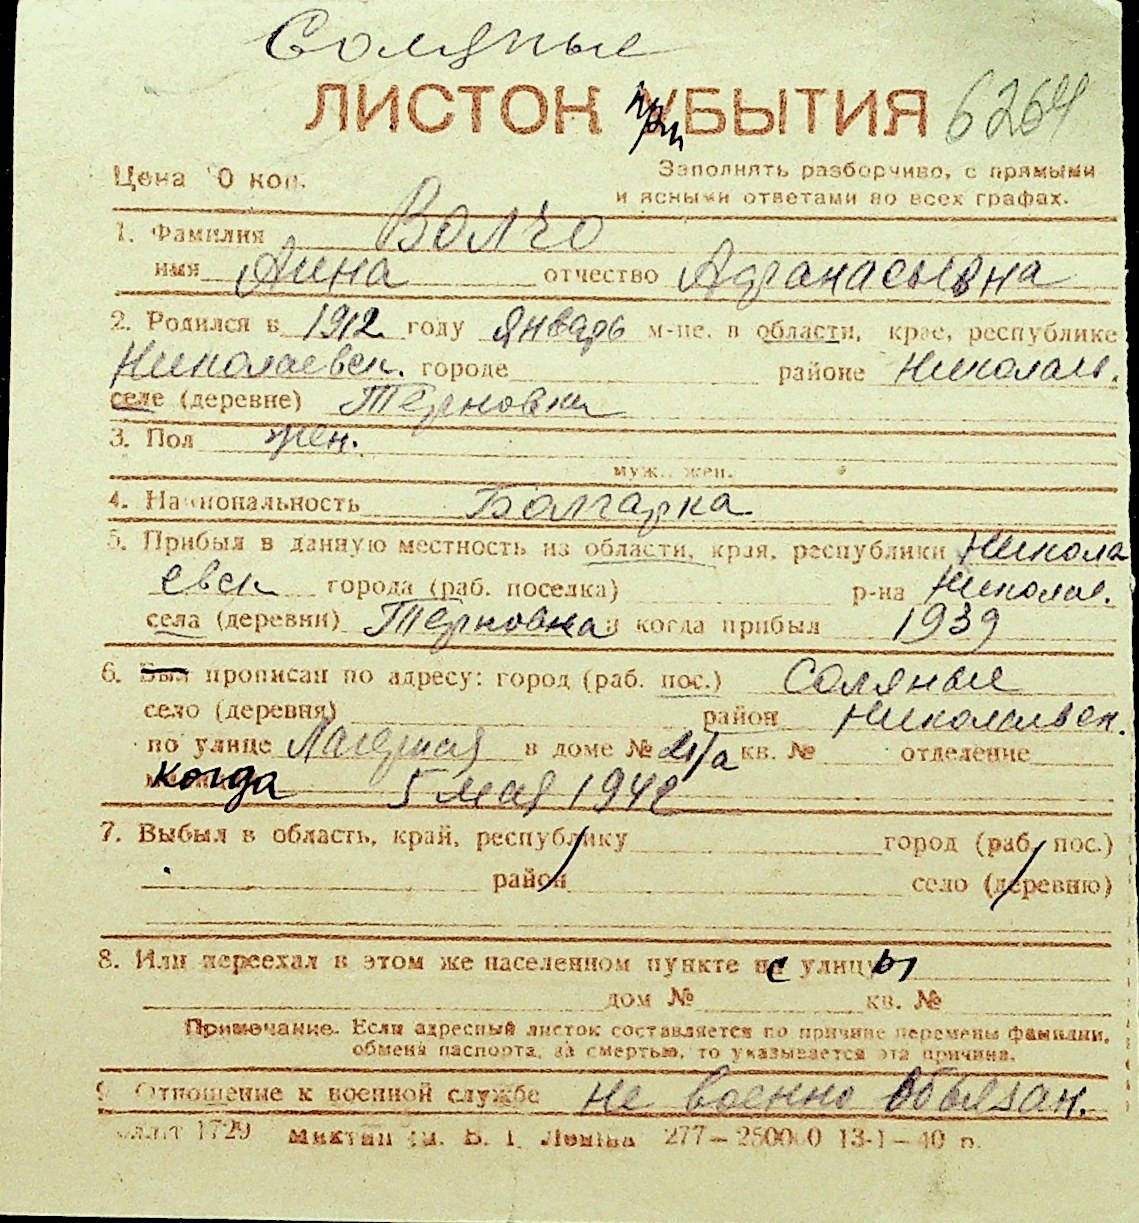 Соляные
ЛИСТОК при УБЫТИЯ 6264
Цена 10 коп. Заполнять разборчиво, с прямыми
и ясными ответами во всех графах.
1. Фамилия Волчо
имя Анна отчество Афанасьевна
2. Родился в 1912 году Январь м-це. в области, крае, республике
Николаевск. городе районе Николаев.
селе (деревне) Терновки
3. Пол жен.
муж., жен.
4. Национальность Болгарка
5. Прибыл в данную местность из области, края, республики Никола
евск города (раб. поселка) р-на Николаев.
села (деревни) Терновка и когда прибыл 1939
6. Был прописан по адресу: город (раб. пос.) Соляные
село (деревня) район Николаевск.
по улице Лагерная в доме № 21/а кв. № отделение
когда 5 мая 1942
7. Выбыл в область, край, республику город (раб. пос.)
район село (деревню)
8. Или переехал в этом же населенном пункте с улицы
дом № кв. №
Примечание. Если адресный листок составляется по причине перемены фамилии,
обмена паспорта, за смертью, то указывается эта причина.
9. Отношение к военной службе не военно обьязан.
1729 277—250000 13-1—40 р.